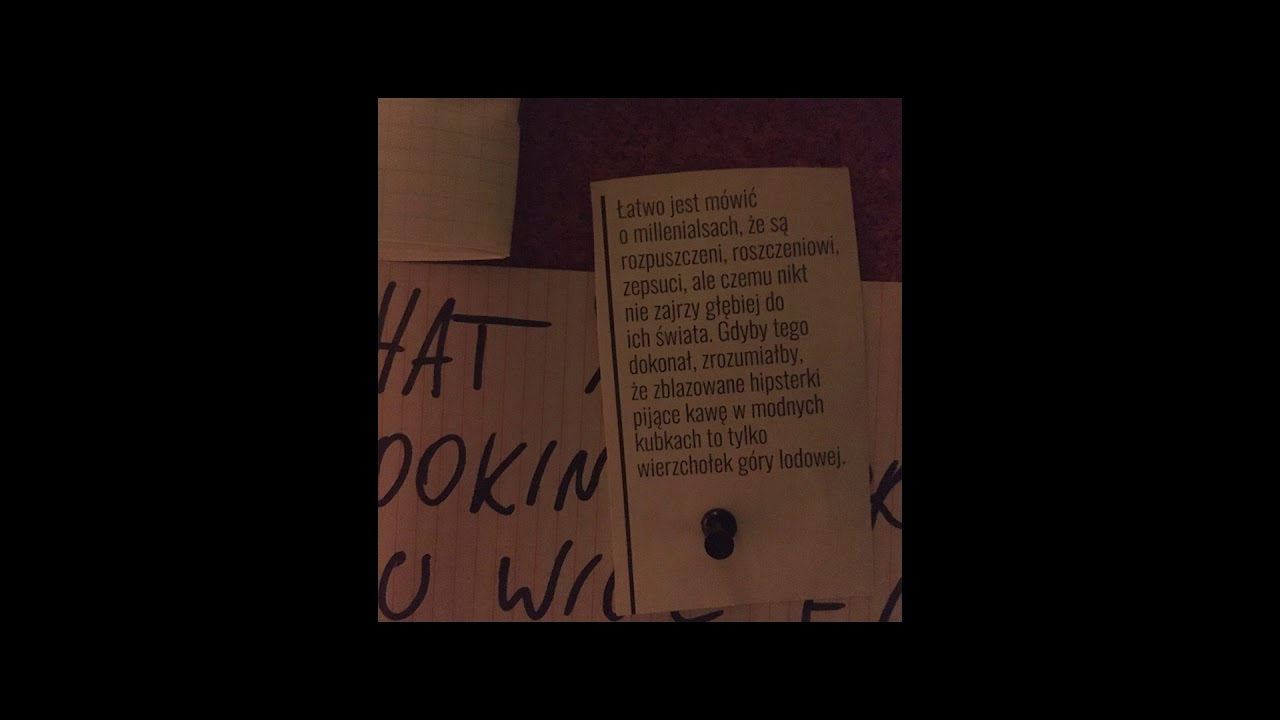 Łatwo jest mówić
o millenialsach, że są
rozpuszczeni, roszczeniowi,
zepsuci, ale czemu nikt
nie zajrzy głębiej do
ich świata. Gdyby tego
dokonał, zrozumiałby,
że zblazowane hipsterki
pijące kawę w modnych
kubkach to tylko
wierzchołek góry lodowej.
HAT
OOKIN
U WILL